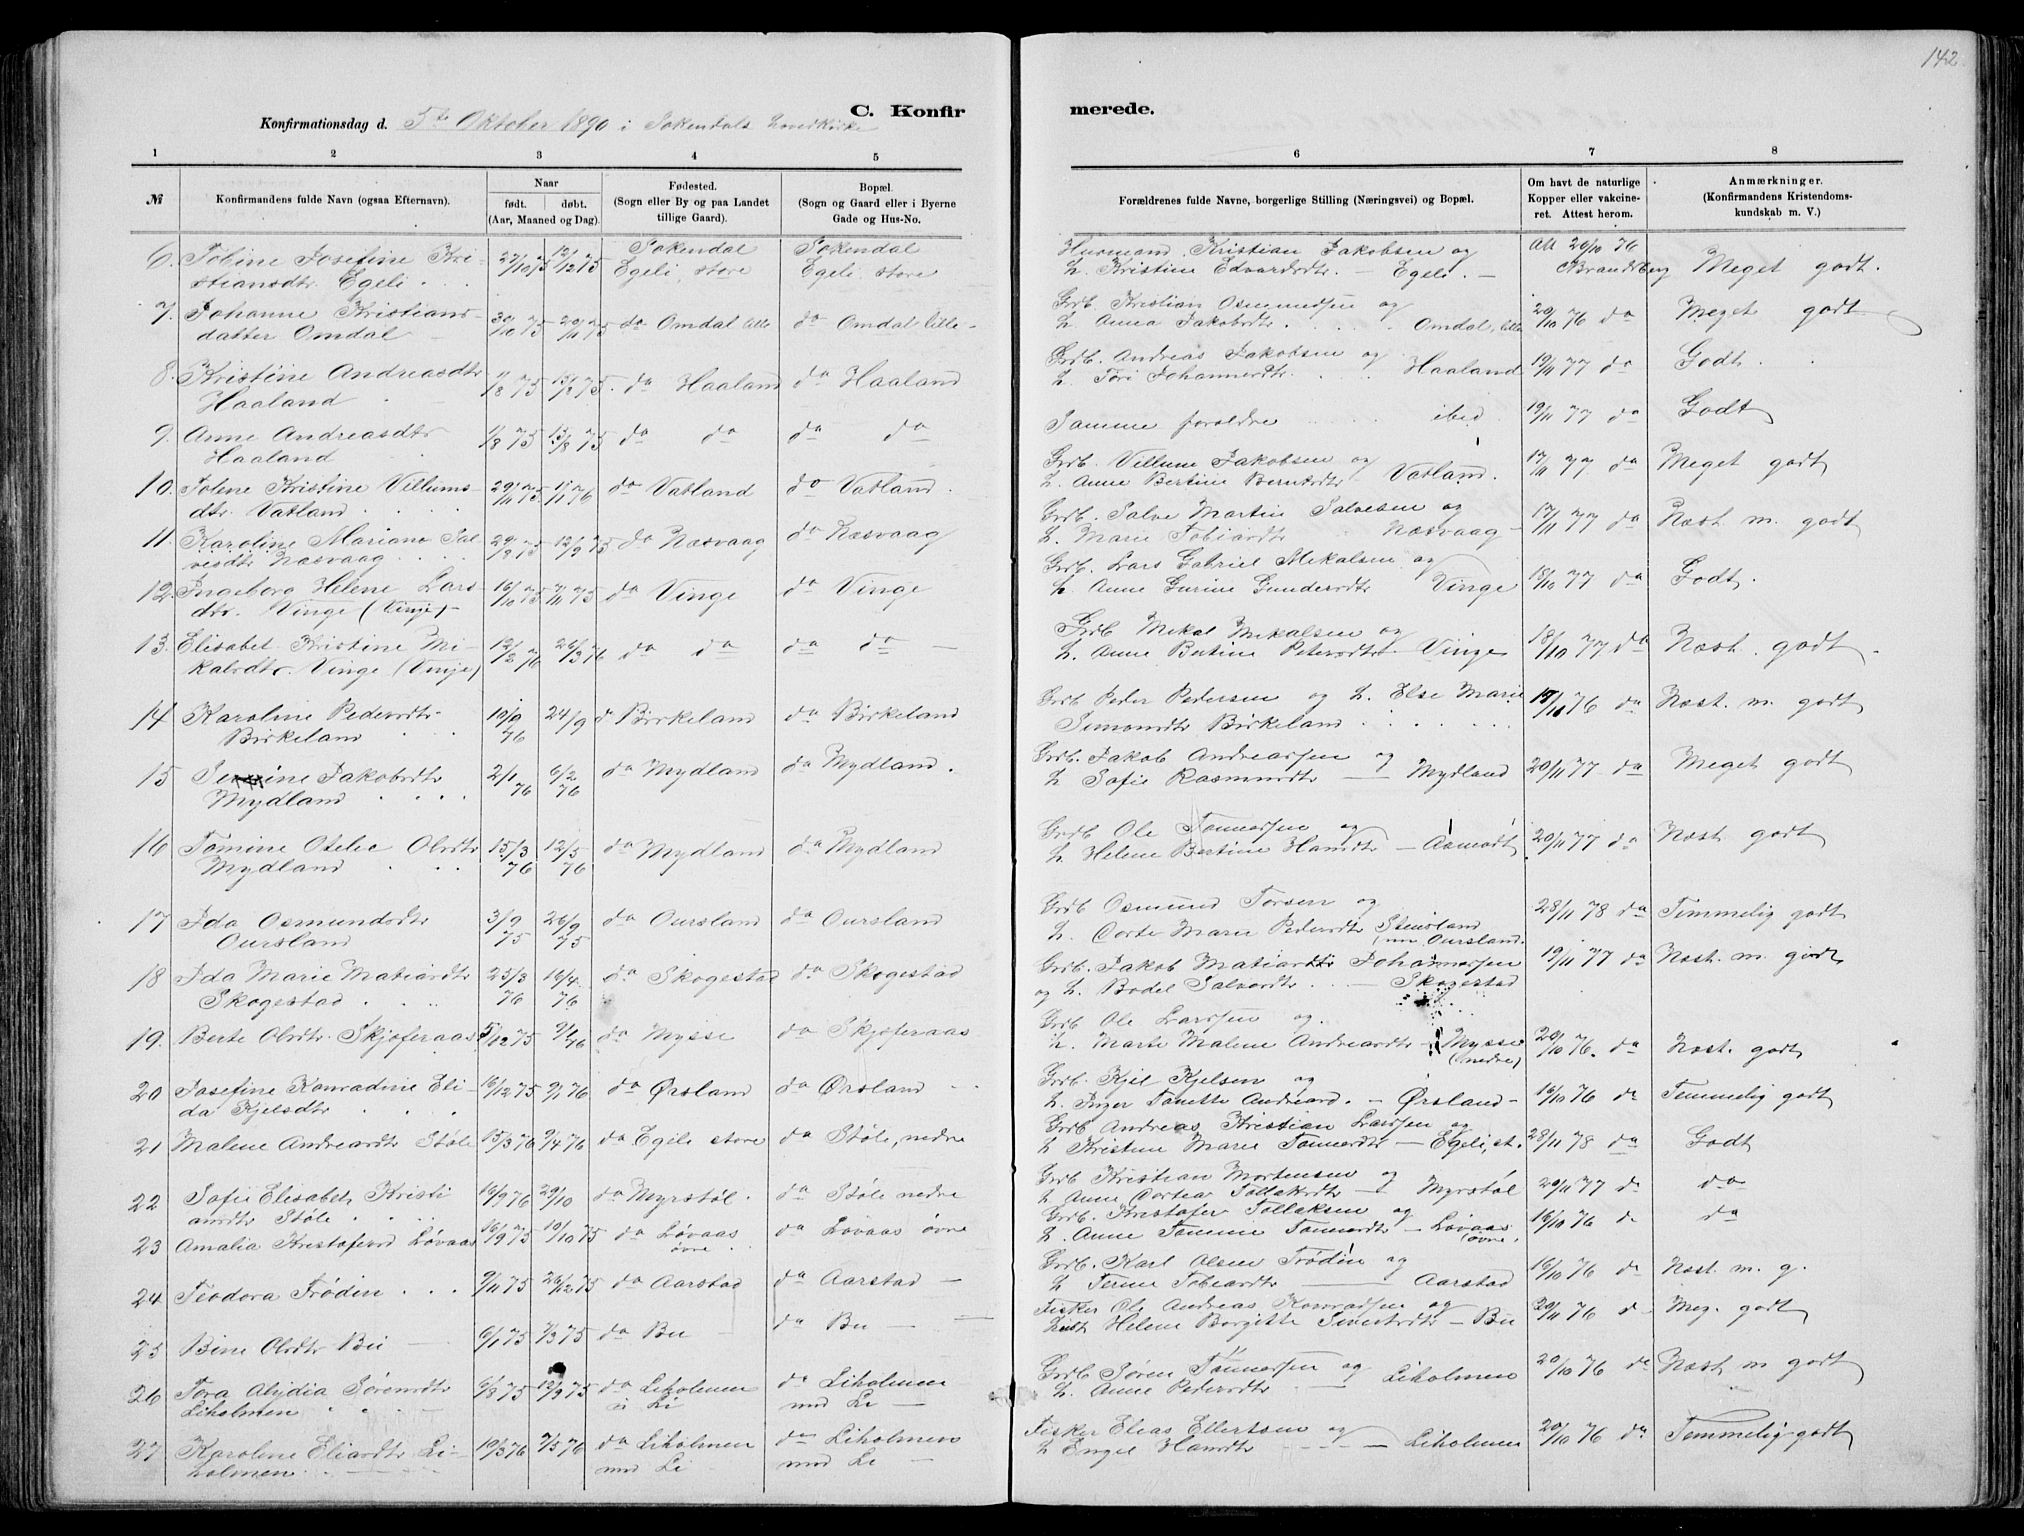 142
C. Konfir
merede.
Konfirmationsdag d. 5te Oktober 1890 i Sokendals Hovedkirke
1 2 3 4 5
6 7 8
№
Konfirmandens fulde Navn (ogsaa Efternavn).
Naar
født. døbt.
(Aar, Maaned og Dag).
Fødested.
(Sogn eller By og paa Landet
tillige Gaard).
Bopæl.
(Sogn og Gaard eller i Byerne
Gade og Hus-No.
Forældrenes fulde Navne, borgerlige Stilling (Næringsvei) og Bopæl.
Om havt de naturlige
Kopper eller vakcine-
ret. Attest herom.
Anmærkninger.
(Konfirmandens Kristendoms-
kundskab m. V.)
6. Tobine Josefine Kri- 27/10 75 12/12 75 Sokendal Sokendal Husmand Kristian Jakobsen og Att 20/10 76
stiansdtr Egeli Egeli, store Egeli, store H. Kristine Edvardsdtr. — Egeli. — Brandsberg Meget godt.
7. Johanne Kristians- 30/10 75 20/11 75 do Omdal lille do Omdal lille Grdb. Kristian Osmundsen og 20/10 76 do Meget godt
datter Omdal H. Anna Jakobsdtr. Omdal, lille
8. Kristine Andreasdtr 1/8 75 15/8 75 do Haaland do Haaland Grdb. Andreas Jakobsen og 19/11 77 do Godt
Haaland H. Tori Johannesdtr. Haaland
9. Anne Andreasdtr 1/8 75 15/8 75 do do do do Samme foreldre ibid 19/11 77 do Godt
Haaland
10. Jolene Kristine Villums- 29/11 75 1/11 76 do Vatland do Vatland. Grdb. Villum Jakobsen og 17/11 77 do Meget godt
dtr. Vatland H. Anne Bertine Berntsdtr Vatland.
11. Karoline Mariane Sal- 29/8 75 12/9 75 do Næsvaag do Næsvaag Grdb. Salve Martin Salvesen og 17/11 77 do Næst m. godt
vesdtr Næsvaag H. Marie Tobiasdtr Næsvaag —
12. Ingeborg Helene Lars- 16/10 75 7/11 75 do Vinge do Vinge Grdb. Lars Gabriel Mekalsen og 18/10 77 do Godt.
dtr. Vinge (Vinje) — H. Anne Gurine Gundersdtr Vinge
13. Elisabet Kristine Mi- 12/2 76 26/3 76 do do do do — Grdb Mekal Mekalsen og 18/10 77 do Næst. godt
kalsdtr. Vinge (Vinje) H. Anne Bertine Petersdtr. Vinge
14 Karoline Pedersdtr 10/9 76 24/9 do Birkeland do Birkeland Grdb Peder Pedersen og H. Else Marie 76 do Næst. m. godt
Birkeland Simonsdtr Birkeland
15 Jakobsdtr 2/1 76 6/2 76 do Mydland do Mydland. Grdb. Jakob Andreassen og 20/11 77 do Meget godt
Mydland H. Sofie Rasmusdtr — Mydland
16 Tomine Otelie Olsdtr 15/3 76 12/5 76 do Mydland do Mydland Grdb Ole Tønnessen og 20/11 77 do Næst godt
Mydland H. Helene Bertine Hansdtr —
17 Ida Osmundsdtr 3/9 75 26/9 75 do Oursland do Oursland Grdb Osmund Torsen og 28/11 78 do Temmelig godt
Oursland H. Dorte Marie Pedersdtr Stensland
(nu Oursland.
18 Ida Marie Matiasdtr 25/3 76 16/4 76 do Skogestad do Skogestad Grdb. Jakob Matias Johannessen 19/11 77 do Næst. m. godt
Skogestad og H. Bodel Salvesdtr. — Skogestad
19. Berte Olsdtr. Skjøferaas 5/12 75 do Mysse do Skjøferaas Grdb Ole Larssen og 20/10 76. do Næst. godt
H. Marte Malene Andreasdtr — Mysse
(nedre)
20 Josefine Konradine Eli- 16/12 75 9/1 76 do Ørsland do Ørsland Grdb. Kjel Kjelsen og 16/10 76 do Temmelig godt
da Kjelsdtr H. Inger Tonette Andreasd. — Ørsland —
21 Malene Andreasdtr Støle 15/3 76 9/4 76 do Egeli store do Støle, nedre Grdb Andreas Kristian Larssen og 28/11 78 do Godt
H. Kristine Marie Tønnesdtr — Egeli, st.
22 Sofie Elisabet Kristi 16/9 76 29/10 do Myrstøl. do Støle nedre Grdb Kristian Mortensen og 20/11 77 do do
ansdtr Støle H. Anne Dortea Tollaksdtr — Myrstøl
23 Amalia Kristofersd Løvaas 16/9 75 10/10 75 do Løvaas do Lovaas øvre Grdb. Kristofer Tollaksen og 16/10 76 do do
øvre H. Anne Tomine Tønnesdtr — Lovaas
(øvre.
24 Teodora Trödin 9/11 75 26/12 75 do Aarstad do Aarstad — Grdb. Karl Olsen Trödin og 16/10 76 do Næst. m. g.
H Terine Tobiasdtr — Aarstad
25 Bine Olsdtr Bu — 6/1 75 7/3 75 do Bu — do Bu — Fisker Ole Andreas Konradsen og 20/11 76 do Meg. godt
Hust Helene Borgitte Sivertsdtr — Bu
26 Tora Alydia Sørensdtr 6/8 75 12/9 75 do Liholmen do Liholmen Grdb Søren Tønnessen og 20/10 76 do Næst m godt
Liholmen Li und Li — H. Anne Pedersdtr — Liholmen
27 Karoline Eliasdtr Li- 10/3 76 7/5 76 do Liholmen do Liholmen Fisker Elias Ellertsen og 20/10 76 do Temmelig godt
holmen und Li — und Li — H Engel Hansdtr — Liholmen